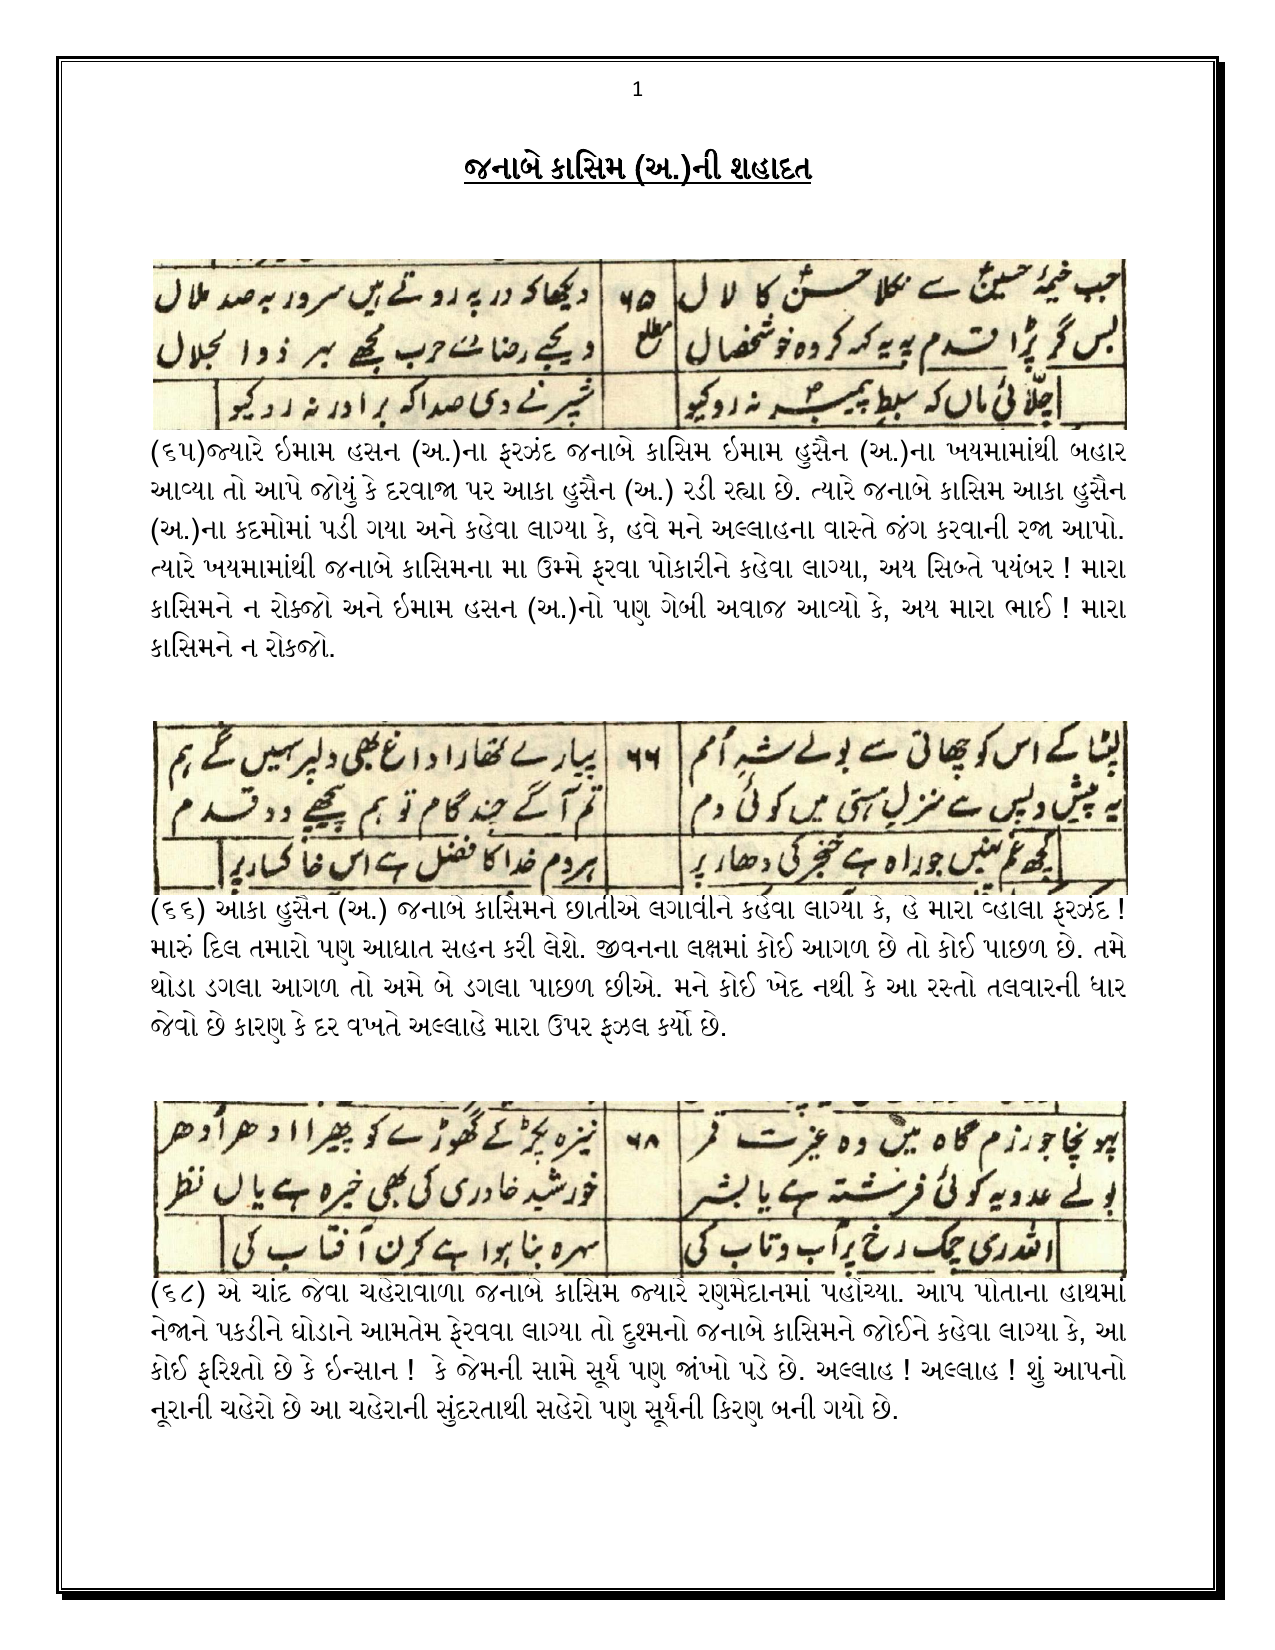 1
જનાબે કાસિમ (અ.)ની શહાદત
جب خیمۂ حسینؑ سے نکلا حسنؑ کا لال ۶۵ دیکھا کہ در پہ روتے ہیں سرور بہ صد ملال
بس گر پڑا قدم پہ یہ کہہ کر وہ خوشخصال مطلع دیجیے رضائے حرب مجھے بہر ذوالجلال
چلّائی ماں کہ سبطِ پیمبرؐ نہ روکیو شبّرؑ نے دی صدا کہ برادر نہ روکیو
(૬૫)જ્યારે ઇમામ હસન (અ.)ના ફરઝંદ જનાબે કાસિમ ઇમામ હુસૈન (અ.)ના ખયમામાંથી બહાર
આવ્યા તો આપે જોયું કે દરવાજા પર આકા હુસૈન (અ.) રડી રહ્યા છે. ત્યારે જનાબે કાસિમ આકા હુસૈન
(અ.)ના કદમોમાં પડી ગયા અને કહેવા લાગ્યા કે, હવે મને અલ્લાહના વાસ્તે જંગ કરવાની રજા આપો.
ત્યારે ખયમામાંથી જનાબે કાસિમના મા ઉમ્મે ફરવા પોકારીને કહેવા લાગ્યા, અય સિબ્તે પયંબર ! મારા
કાસિમને ન રોકજો અને ઇમામ હસન (અ.)નો પણ ગેબી અવાજ આવ્યો કે, અય મારા ભાઈ ! મારા
કાસિમને ન રોકજો.
لپٹا کے اس کو چھاتی سے بولے شہِ اُمم ۶۶ پیارے تمھارا داغ بھی دل پر سہیں گے ہم
یہ پیش و پس ہے منزلِ ہستی میں کوئی دم تم آگے چند گام تو ہم پیچھے دو قدم
کچھ غم نہیں جو راہ ہے خنجر کی دھار پر ہر دم خدا کا فضل ہے اس خاکسار پر
(૬૬) આકા હુસૈન (અ.) જનાબે કાસિમને છાતીએ લગાવીને કહેવા લાગ્યા કે, હે મારા વ્હાલા ફરઝંદ !
મારું દિલ તમારો પણ આઘાત સહન કરી લેશે. જીવનના લક્ષમાં કોઈ આગળ છે તો કોઈ પાછળ છે. તમે
થોડા ડગલા આગળ તો અમે બે ડગલા પાછળ છીએ. મને કોઈ ખેદ નથી કે આ રસ્તો તલવારની ધાર
જેવો છે કારણ કે દર વખતે અલ્લાહે મારા ઉપર ફઝલ કર્યો છે.
پہونچا جو رزم گاہ میں وہ غیرت قمر ۶۸ نیزہ پکڑ کے گھوڑے کو پھیرا ادھر اُدھر
بولے عدو یہ کوئی فرشتہ ہے یا بشر خورشید خاوری کی بھی خیرہ ہے یاں نظر
اللہ ری چمک رخ پر آب و تاب کی سہرہ بنا ہوا ہے کرن آفتاب کی
(૬૮) એ ચાંદ જેવા ચહેરાવાળા જનાબે કાસિમ જ્યારે રણમેદાનમાં પહોંચ્યા. આપ પોતાના હાથમાં
નેજાને પકડીને ઘોડાને આમતેમ ફેરવવા લાગ્યા તો દુશ્મનો જનાબે કાસિમને જોઈને કહેવા લાગ્યા કે, આ
કોઈ ફરિશ્તો છે કે ઇન્સાન ! કે જેમની સામે સૂર્ય પણ જાંખો પડે છે. અલ્લાહ ! અલ્લાહ ! શું આપનો
નૂરાની ચહેરો છે આ ચહેરાની સુંદરતાથી સહેરો પણ સૂર્યની કિરણ બની ગયો છે.